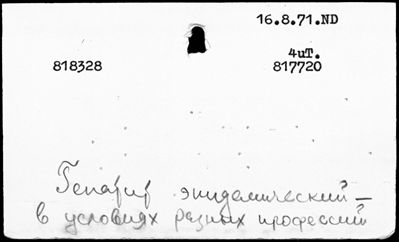 16.8.71.ND
4иТ.
818328
817720
Гепатит эпидемический —
в условиях разных профессий